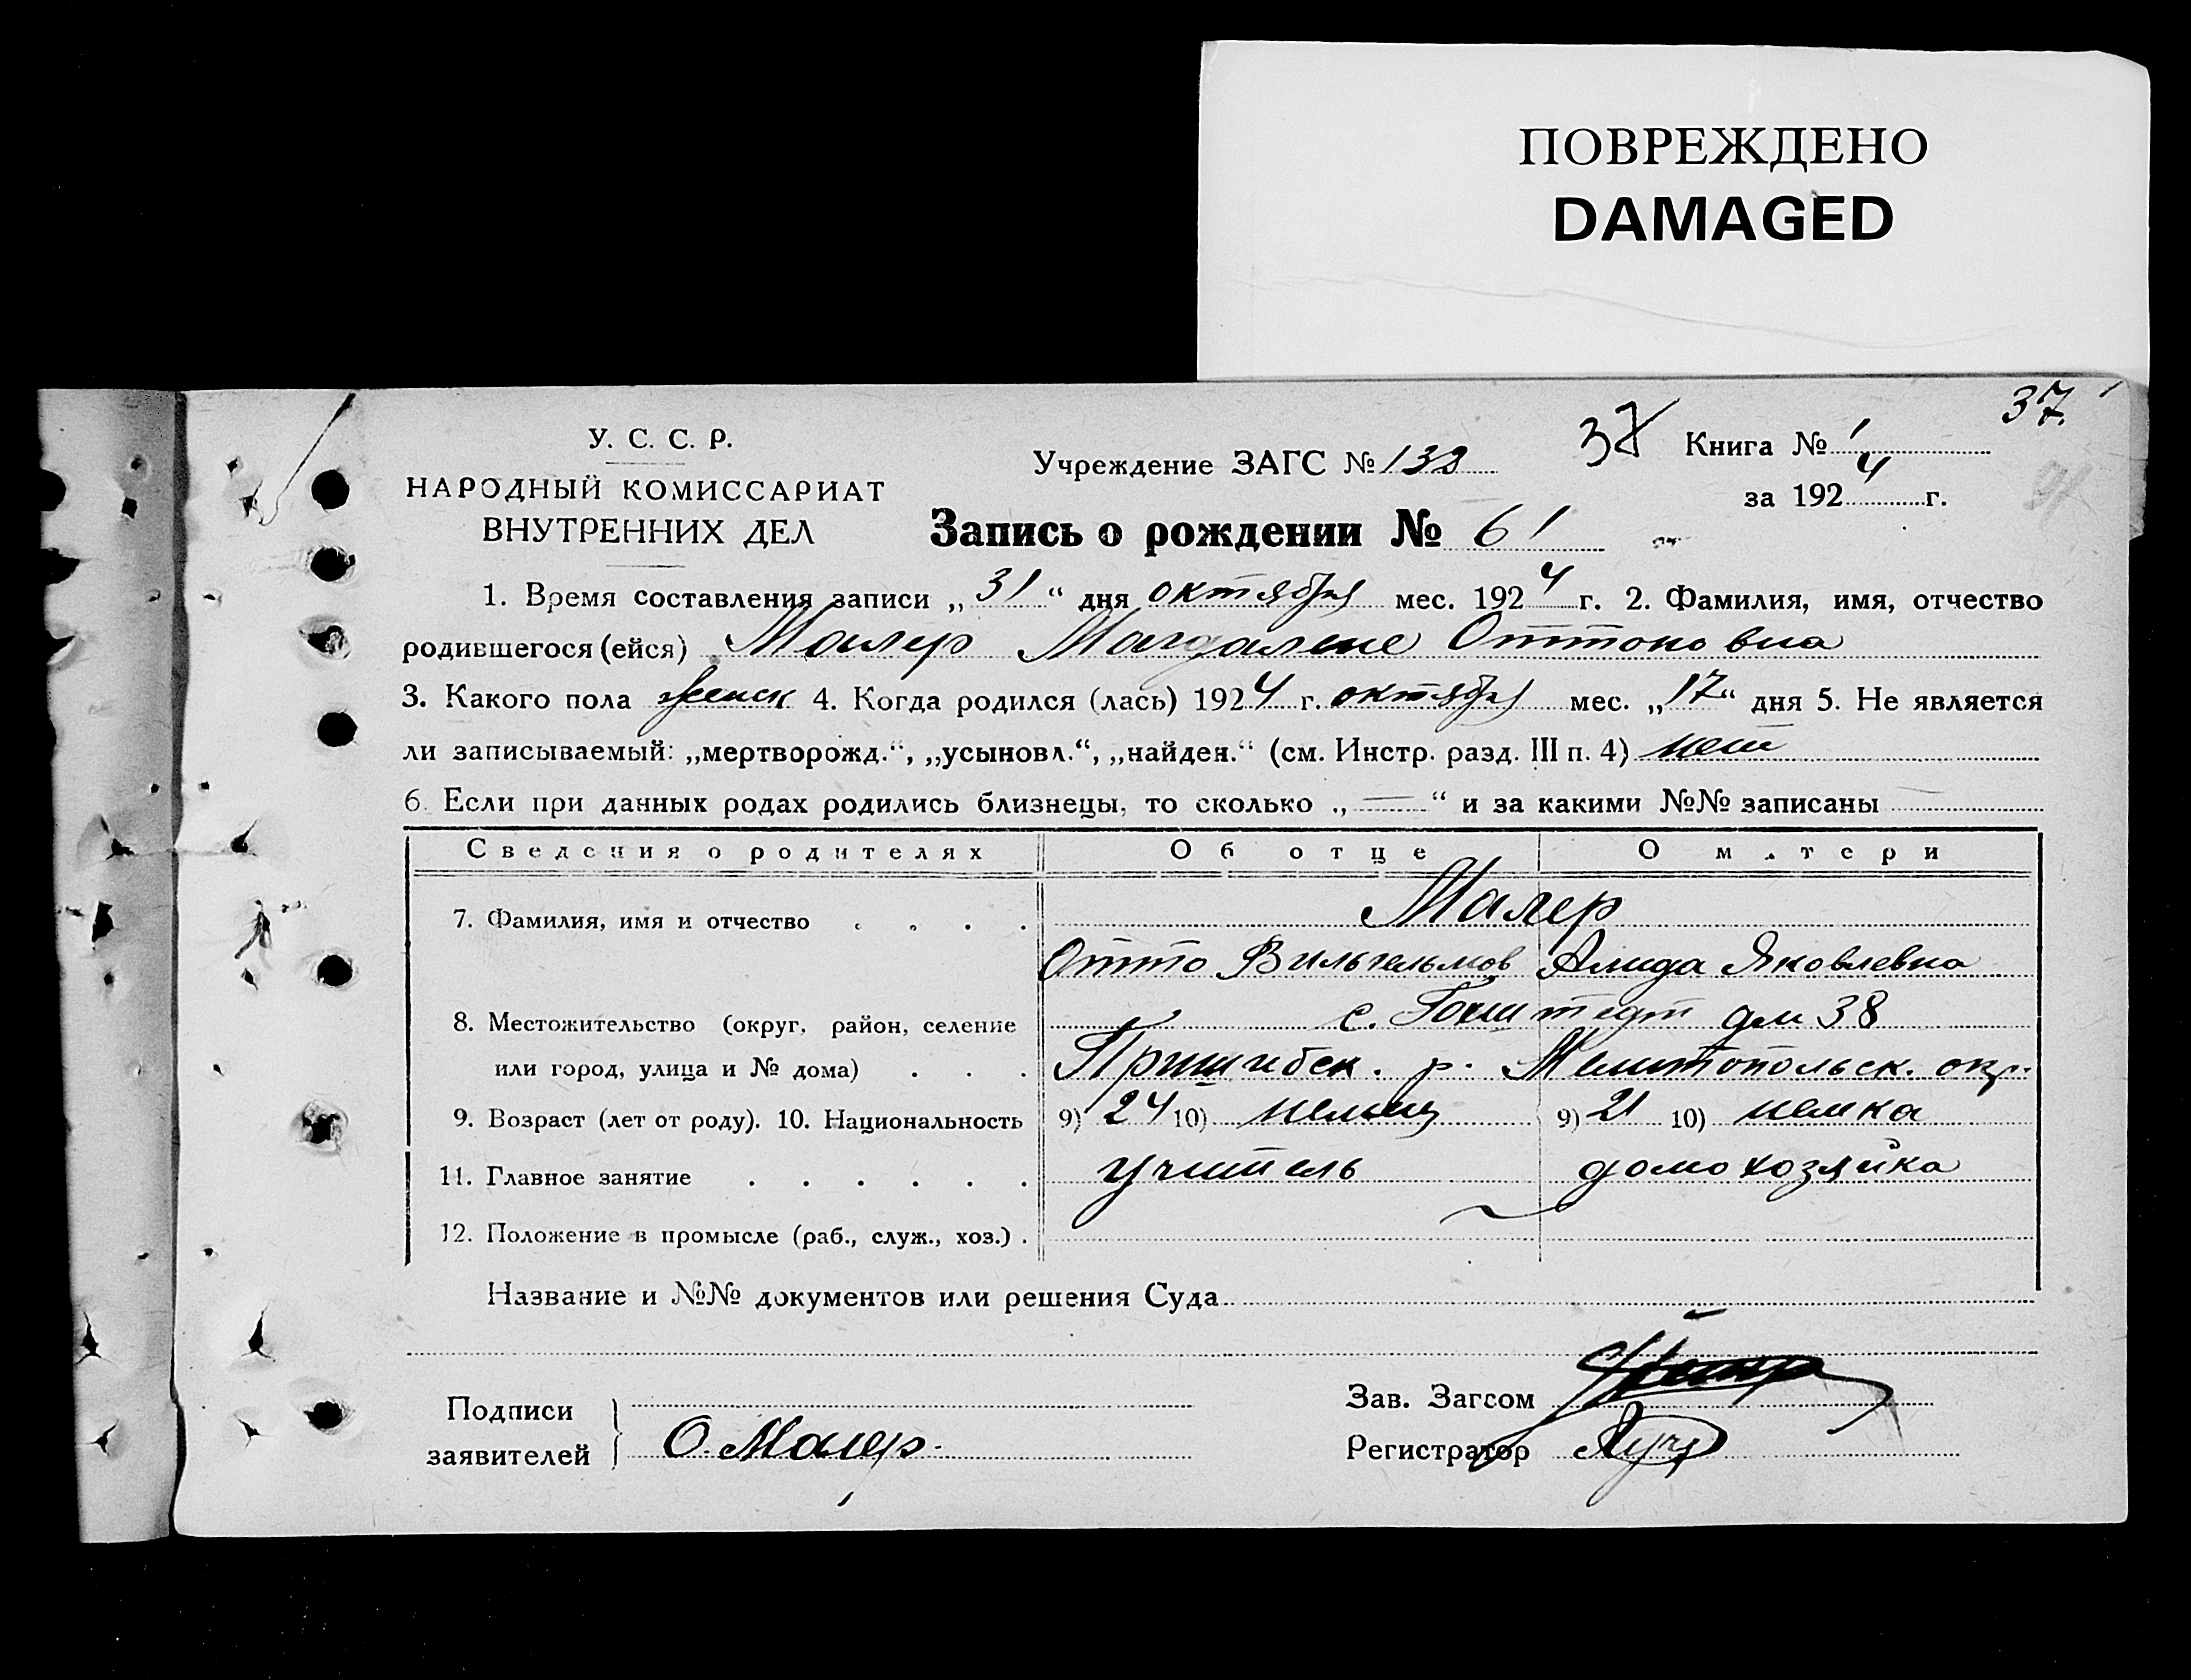 ПОВРЕЖДЕНО
DAMAGED
37.
У. С. С. Р.
НАРОДНЫЙ КОМИССАРИАТ
ВНУТРЕННИХ ДЕЛ
Учреждение ЗАГС № 132
37 Книга № 1
за 1924 г.
Запись о рождении № 61
1. Время составления записи „31“ дня октября мес. 1924 г. 2. Фамилия, имя, отчество
родившегося (ейся) Малер Магдалене Оттоновна
3. Какого пола женск 4. Когда родился (лась) 1924 г. октября мес. „17“ дня 5. Не является
ли записываемый: „мертворожд.“, „усыновл.“, „найден.“ (см. Инстр. разд. III п. 4) нет
6. Если при данных родах родились близнецы, то сколько „—“ и за какими №№ записаны —
Сведения о родителях Об отце О матери
7. Фамилия, имя и отчество . . . . Малер
Отто Вильгельмов Алида Яковлевна
8. Местожительство (округ, район, селение с. Гохштедт дом 38
или город, улица и № дома) . . . Пришибск. р. Мелитопольск. окр.
9. Возраст (лет от роду). 10. Национальность 9) 24 10) немец 9) 21 10) немка
11. Главное занятие . . . . . . учитель домохозяйка
12. Положение в промысле (раб., служ., хоз.) .
Название и №№ документов или решения Суда
Подписи
заявителей О. Малер.
Зав. Загсом
Регистратор